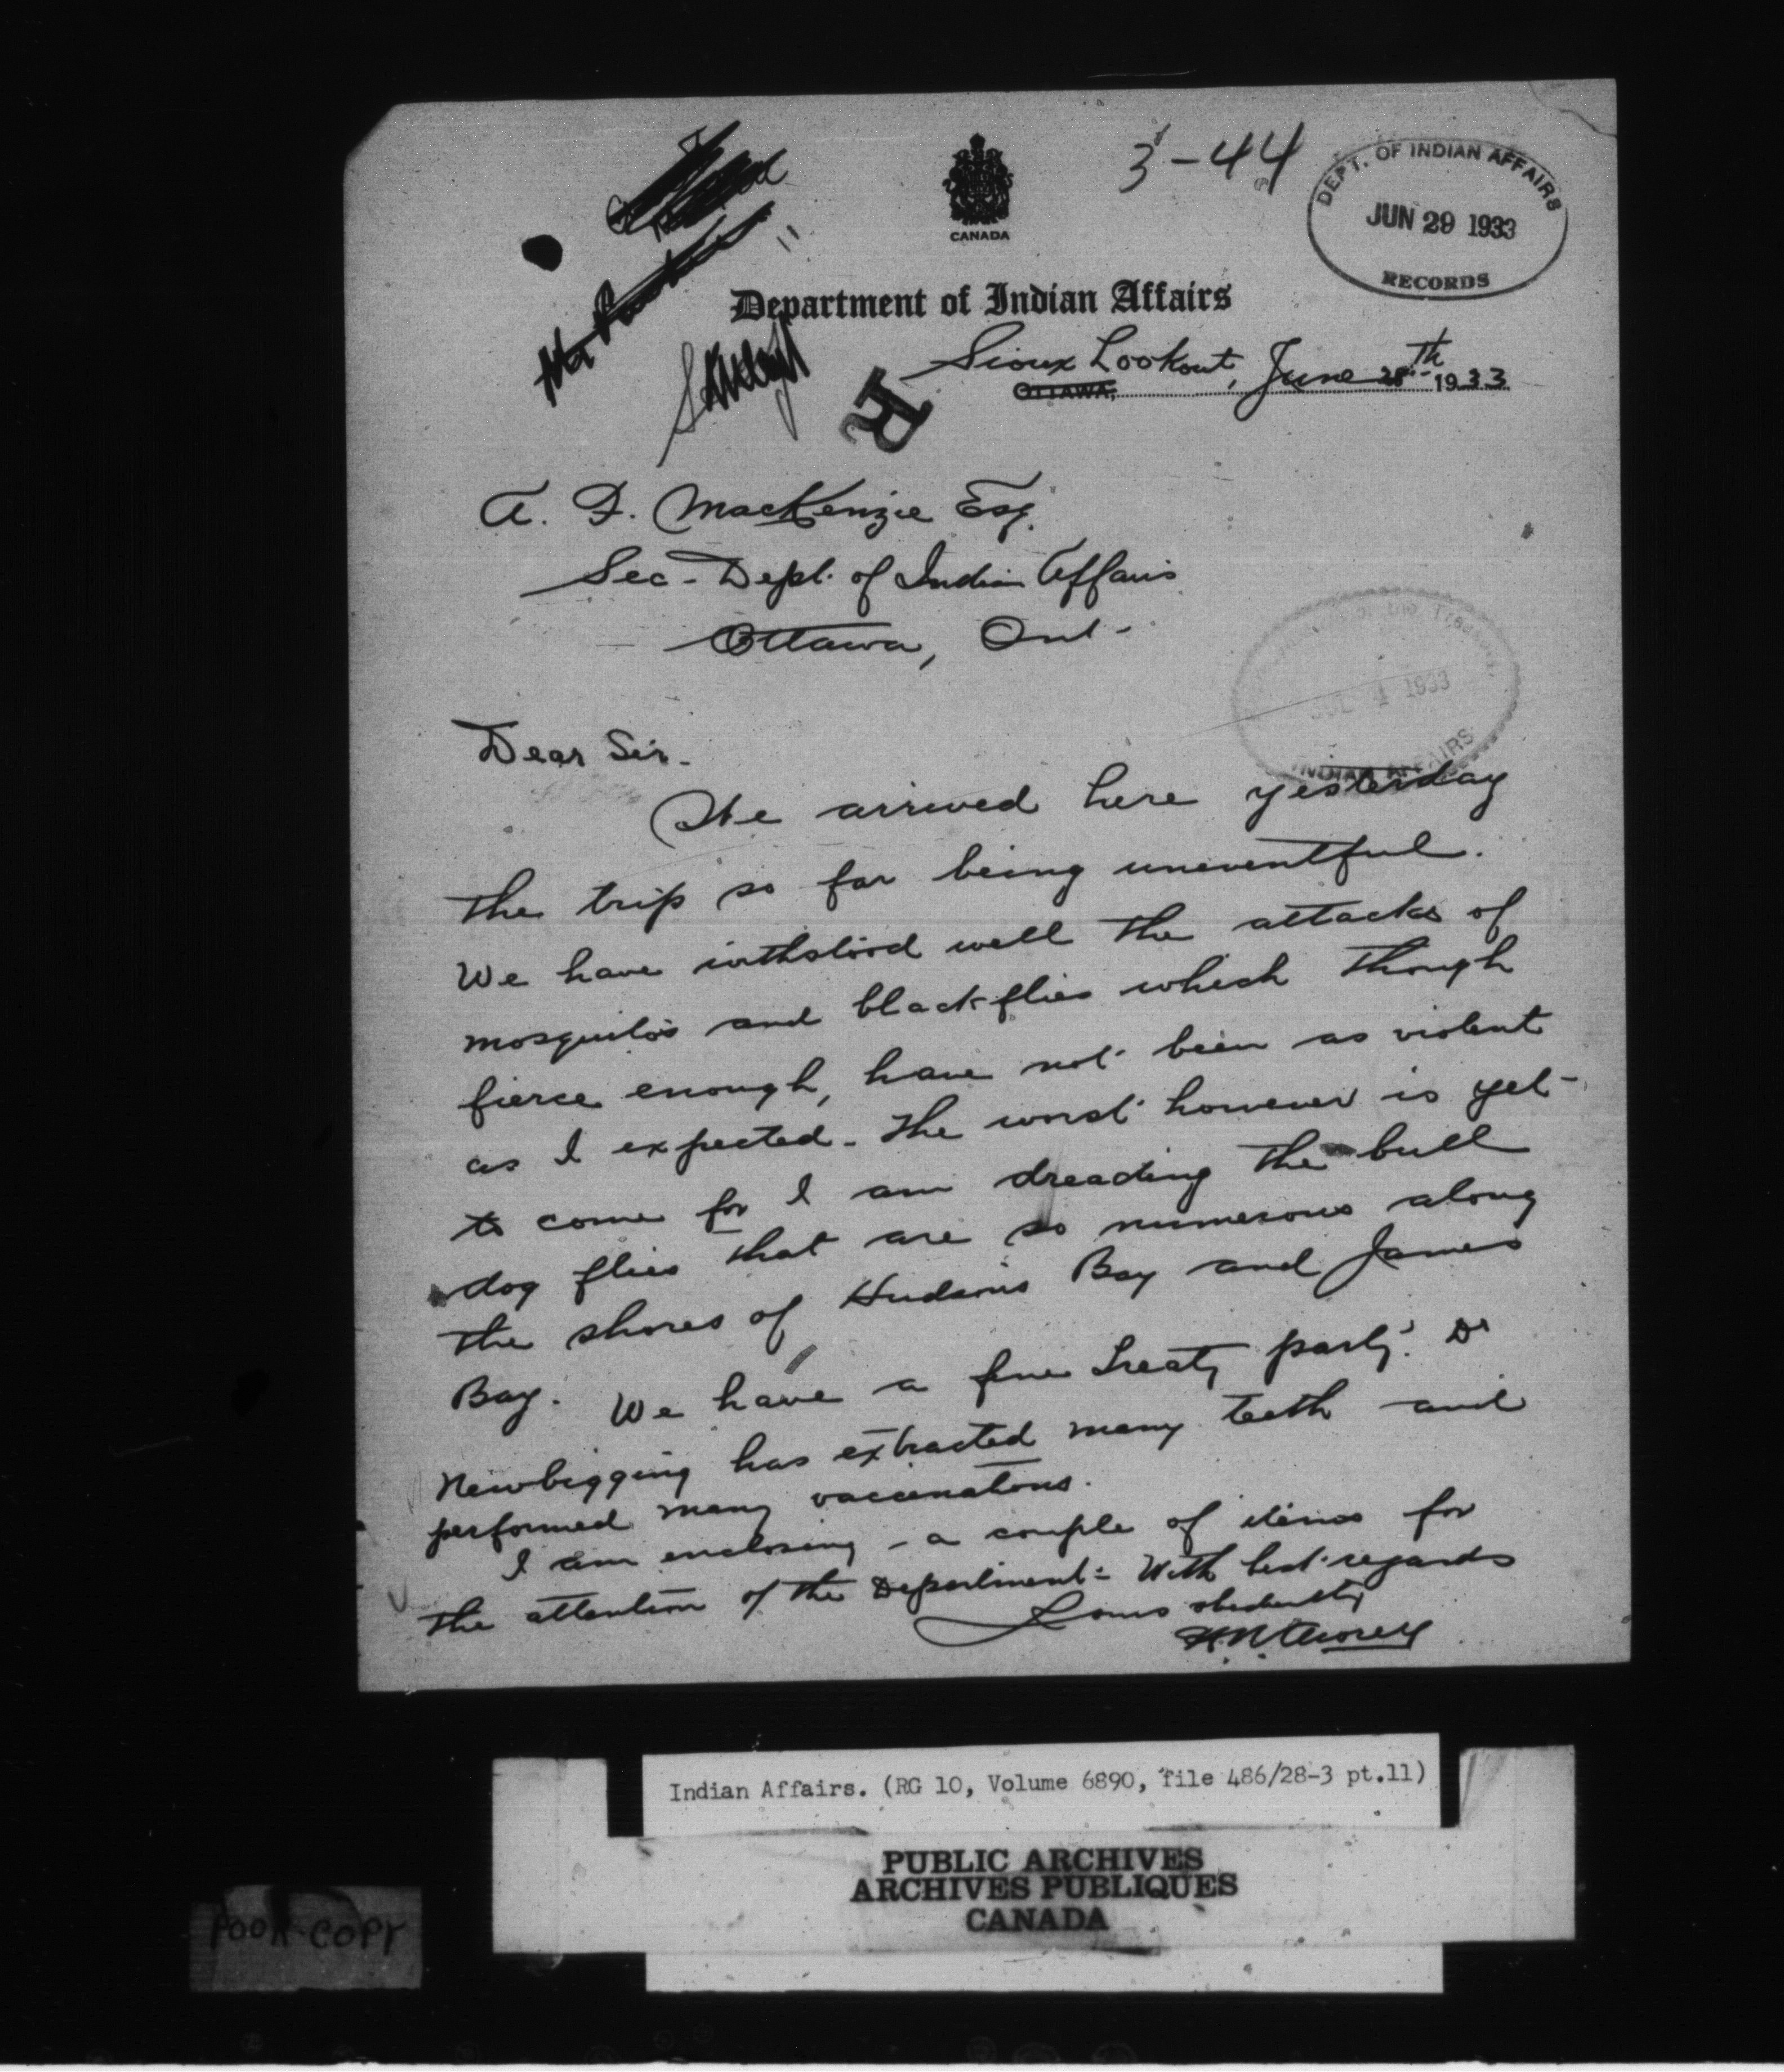 3-44
DEPT. OF INDIAN AFFAIRS
JUN 29 1933
RECORDS
CANADA
Department of Indian Affairs
Sioux Lookout, June 28th 1933
OTTAWA,
R
A. F. MacKenzie Esq.
Sec- Dept. of Indian Affairs
Ottawa, Ont-
of the Treasury
JUL 4 1933
INDIAN AFFAIRS
Dear Sir-
We arrived here yesterday
the trip so far being uneventful.
We have withstood well the attacks of
mosquitos and blackflies which though
fierce enough, have not been as violent
as I expected - The worst however is yet -
to come for I am dreading the bull
dog flies that are so numerous along
the shores of Hudsons Bay and James
Bay. We have a fine Treaty party. Dr
Newbigging has extracted many teeth and
performed many vaccinations.
I am enclosing - a couple of items for
the attention of the Department - With best regards
Yours obediently
Indian Affairs. (RG 10, Volume 6890, file 486/28-3 pt.11)
PUBLIC ARCHIVES
ARCHIVES PUBLIQUES
CANADA
POOR COPY